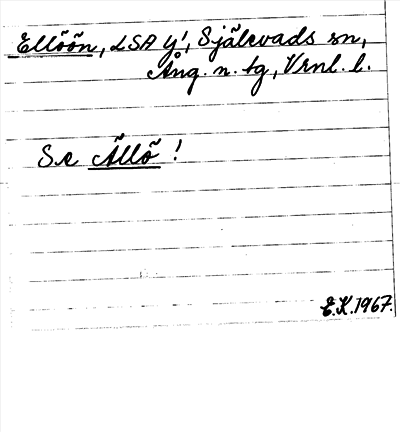 Ellöön, LSA y!, Själevads sn,
Ång. n. tg, Vrnl. l.
Se Ällö!
E.K. 1967.